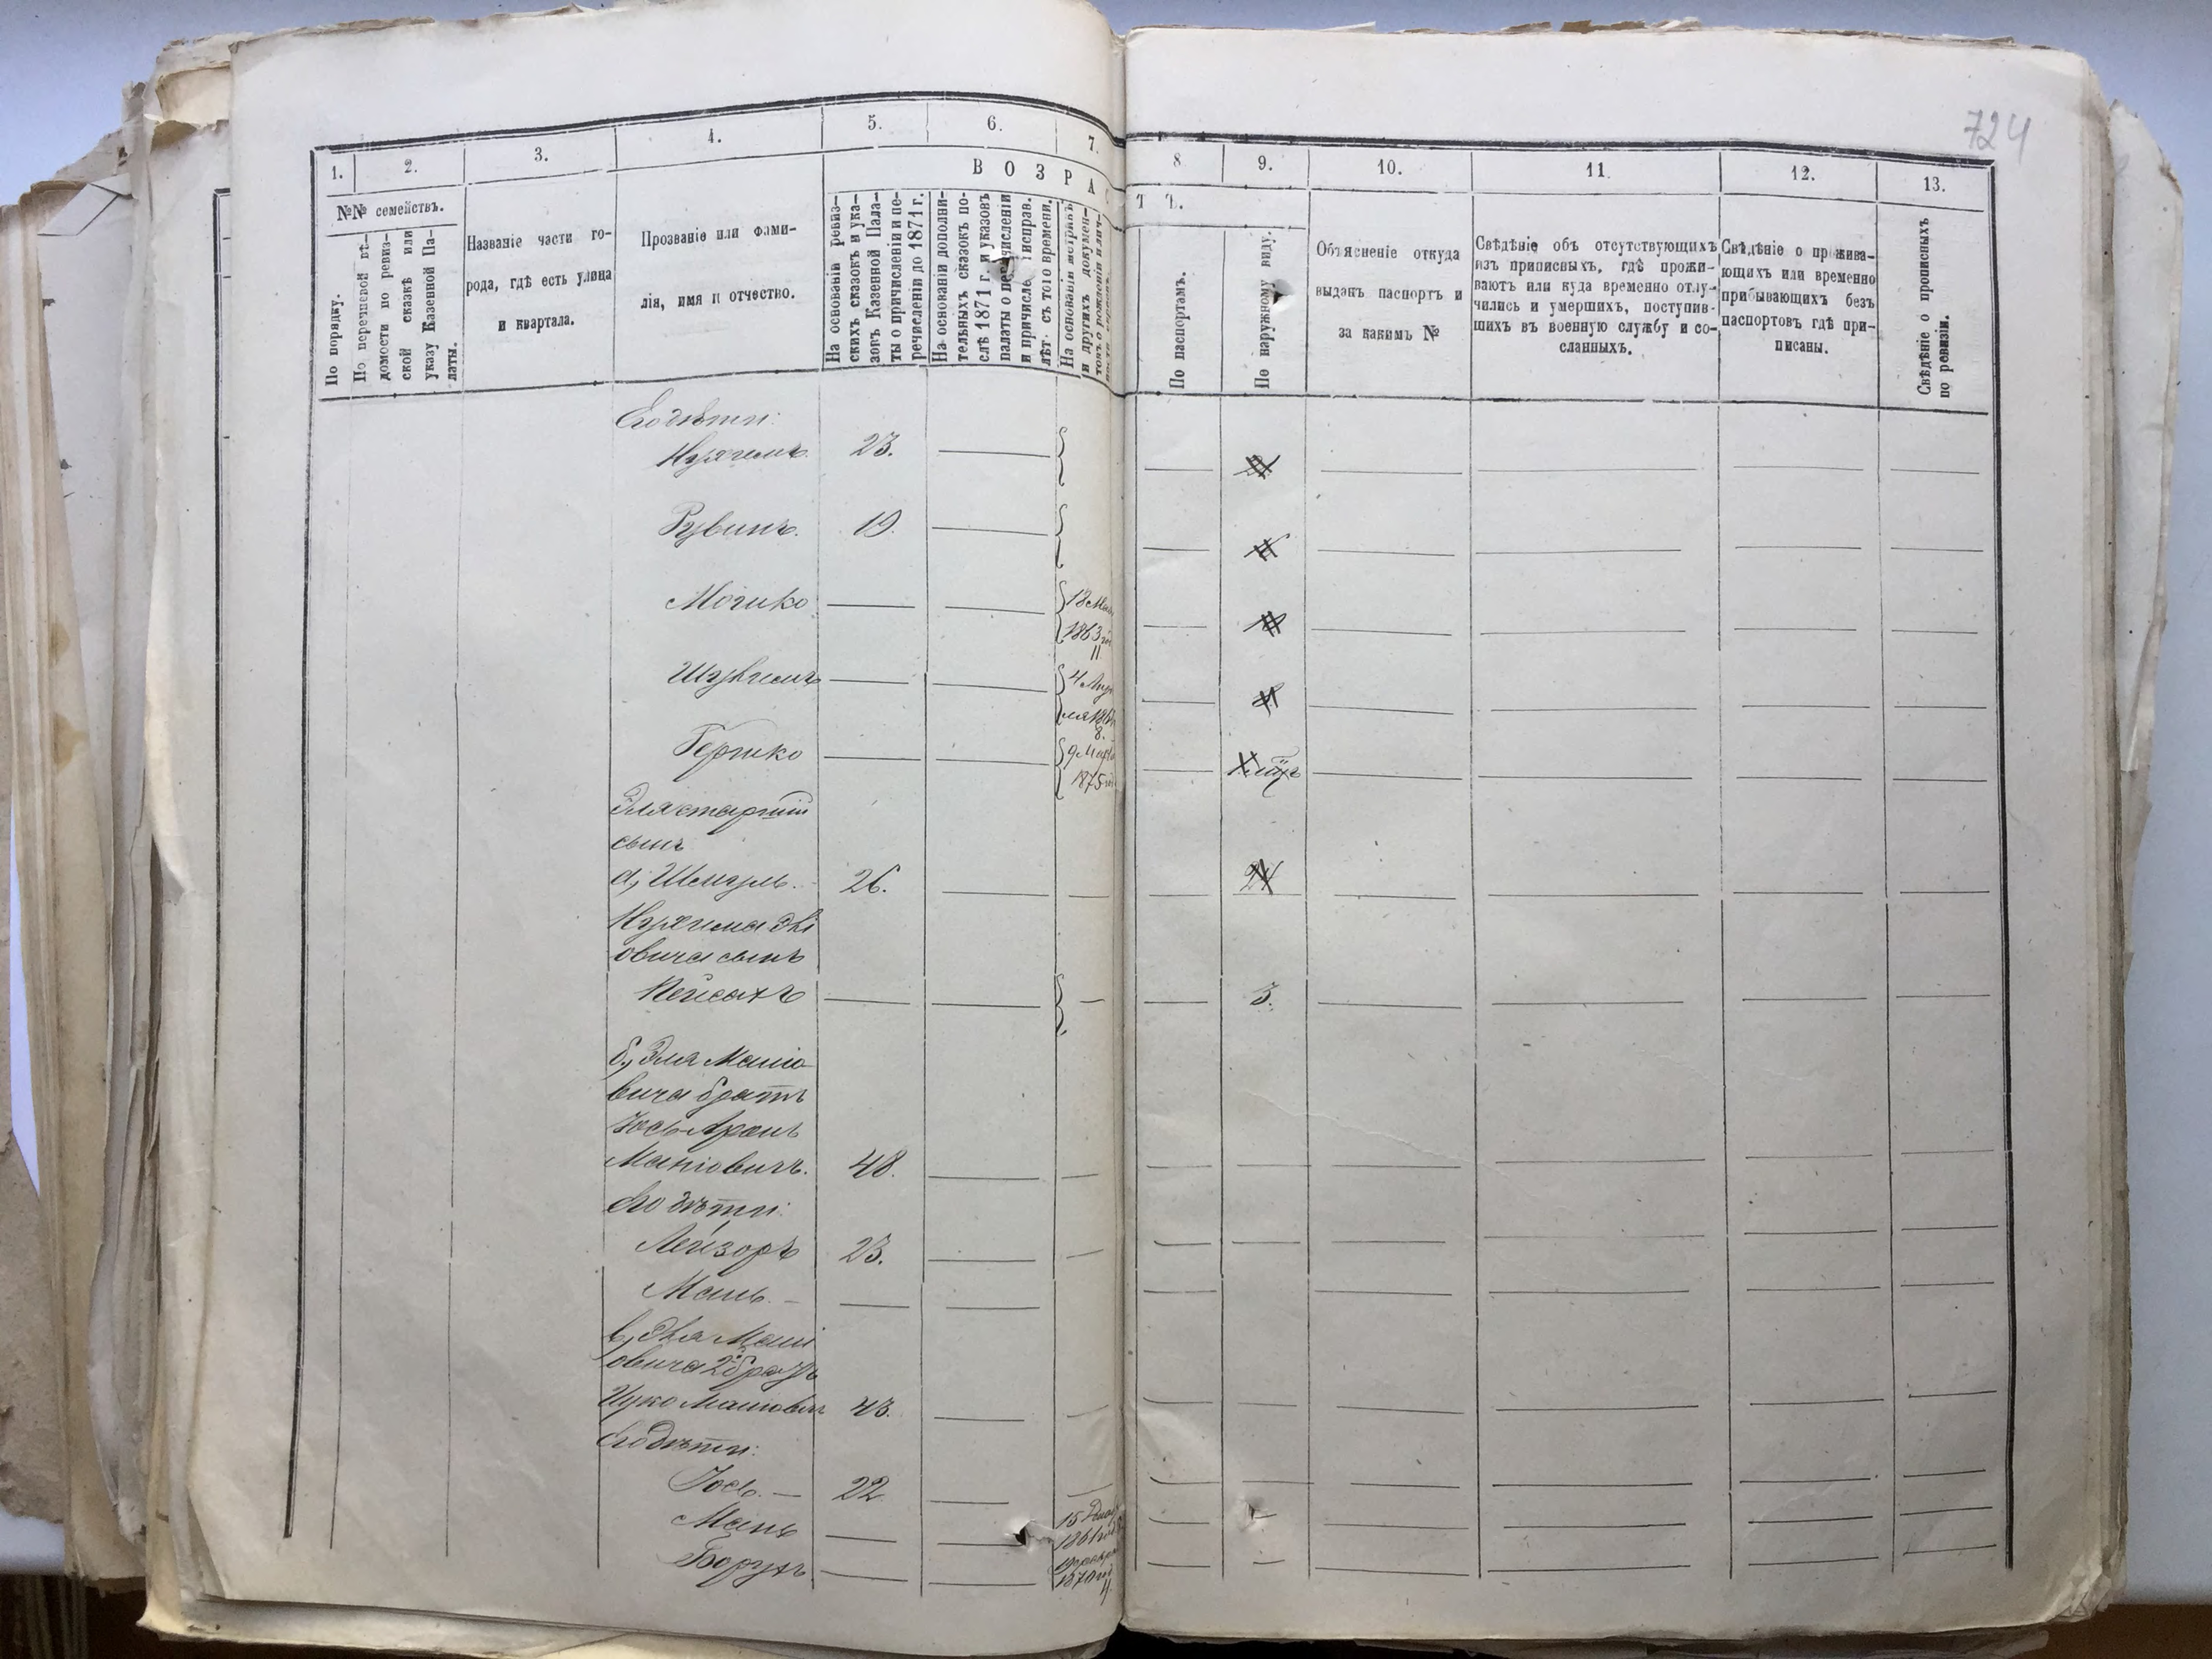 724
1. 2. 3. 4. 5. 6. 7. 8 9. 10. 11. 12. 13.
В О З Р А С Т Ъ.
№№ семействъ.
По порядку.
По перечневой вѣ-
домости по ревиз-
ской сказкѣ или
указу Казенной Па-
латы.
Названіе части го-
рода, гдѣ есть улица
и квартала.
Прозваніе или фами-
лія, имя и отчество.
На основаніи ревиз-
скихъ сказокъ и ука-
зовъ Казенной Пала-
ты о причисленіи и пе-
речисленіи до 1871 г.
На основаніи дополни-
тельныхъ сказокъ по-
слѣ 1871 г. и указовъ
палаты о перечисленіи
и причисле. исправ.
лѣт. съ того времени.
На основаніи метрикъ
и другихъ докумен-
товъ о рожденіи
По паспортамъ.
По наружному виду.
Объясненіе откуда
выданъ паспортъ и
за какимъ №
Свѣдѣніе объ отсутствующихъ
изъ приписныхъ, гдѣ прожи-
ваютъ или куда временно отлу-
чились и умершихъ, поступив-
шихъ въ военную службу и со-
сланныхъ.
Свѣдѣніе о прожива-
ющихъ или временно
прибывающихъ безъ
паспортовъ гдѣ при-
писаны.
Свѣдѣніе о прописныхъ
по ревизіи.
Его дѣти:
Нухимъ. 23.
Рувинъ. 19.
Мошко 18
1863
11
4
8.
Гершко 9 Марта
1875
Эля старшій
сынъ
а, Шмуль. 26. 24
Нухима
овича сынъ
Пейсахъ 3.
б, Эля Маніо
вича братъ
Іось Аронъ
Маніовичъ. 48.
Его дѣти:
Лейзоръ 23.
Мань.
в, Эля Мані
овича 2й братъ
Ицко Маніовичъ 43.
Его дѣти:
Іось. 22
Мань 15
1861
Борухъ 19
1870
11